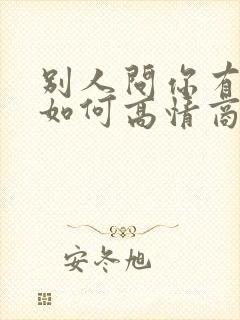 别人問你有
如何高情商
安冬旭